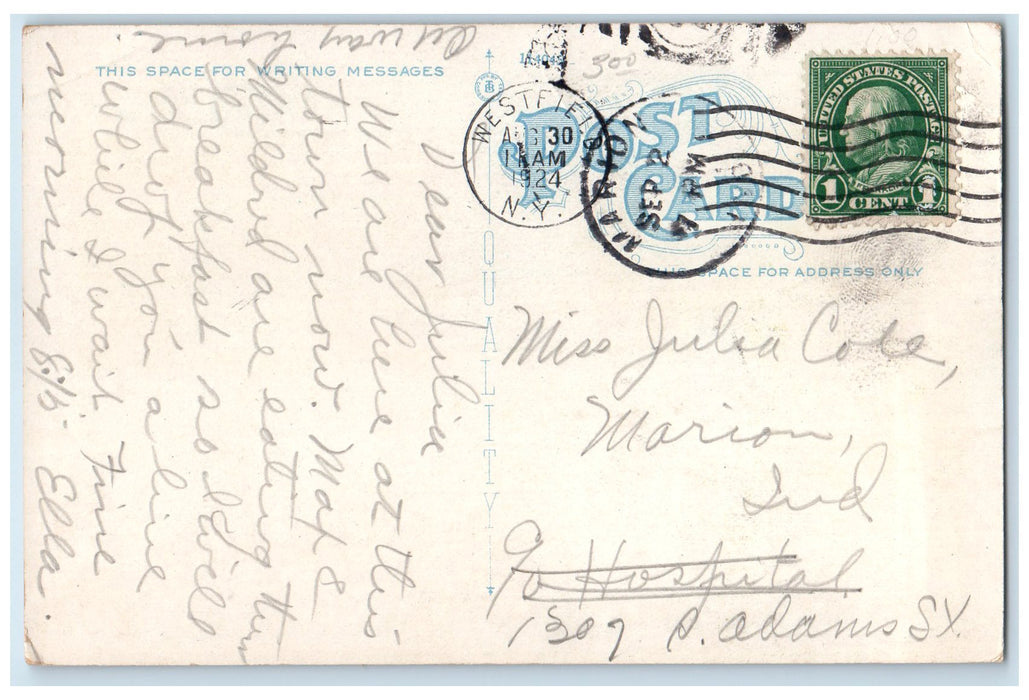 THIS SPACE FOR WRITING MESSAGES
On way home.
Dear Julia
We are here at this
town now. Max &
Mildred are eating their
breakfast so I will
drop you a line
while I wait. Fine
morning 8:15. Ella.
300
WESTFIELD
AUG 30
1 AM
1924
N.Y.
MARION
SEP 2
AM
POST
CARD
UNITED STATES POSTAGE
FRANKLIN
1 CENT 1
THIS SPACE FOR ADDRESS ONLY
QUALITY
Miss Julia Cole,
Marion,
Ind
c/o Hospital
1309 S. Adams St.